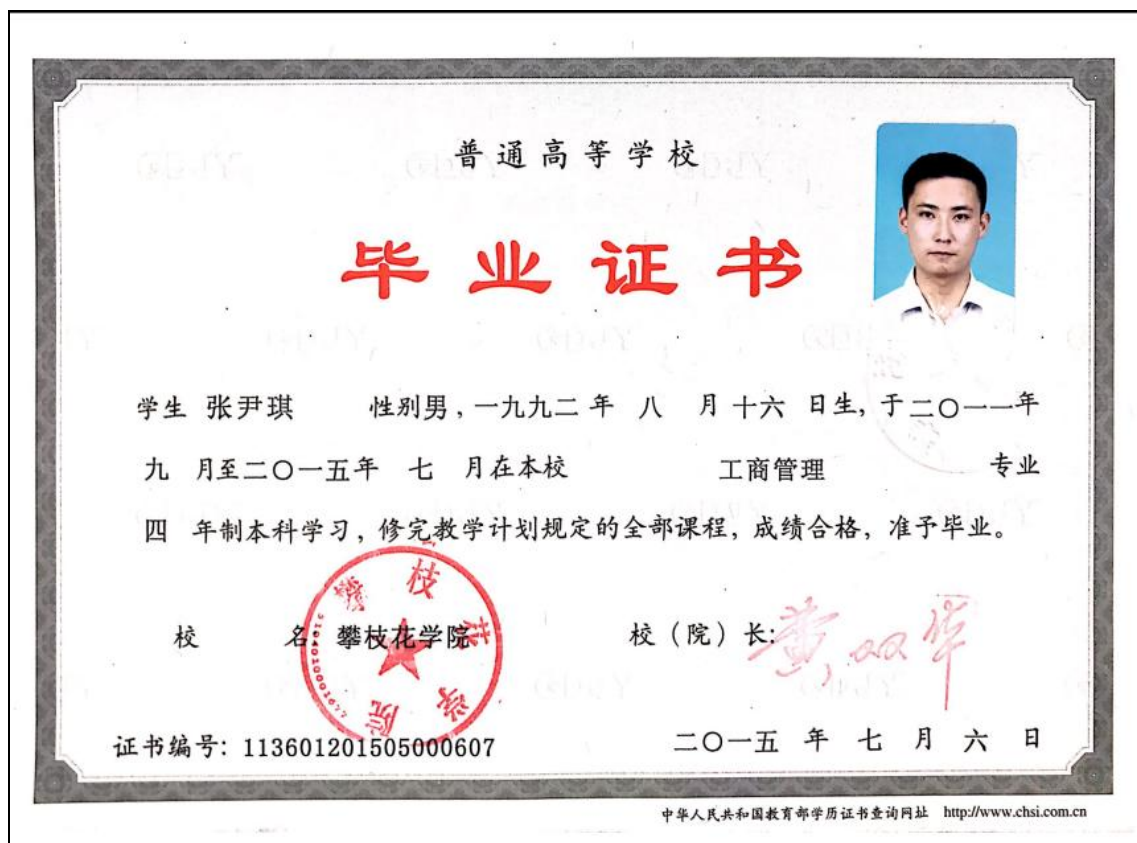 普通高等学校
毕业证书
学生 张尹琪 性别男，一九九二 年 八 月 十六 日生，于二〇一一年
九 月至二〇一五年 七 月在本校 工商管理 专业
四 年制本科学习，修完教学计划规定的全部课程，成绩合格，准予毕业。
校 名 攀枝花学院 校（院）长：黄双华
攀枝花学院
证书编号：113601201505000607 二〇一五 年 七 月 六 日
中华人民共和国教育部学历证书查询网址 http://www.chsi.com.cn